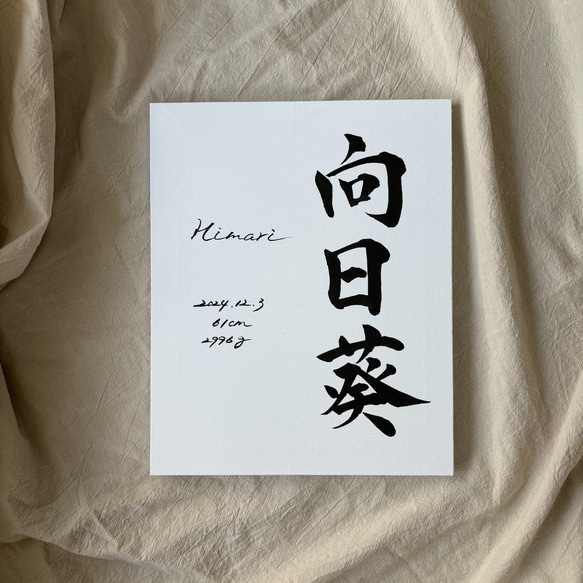 向日葵
Himari
2024.12.3
61cm
2996g